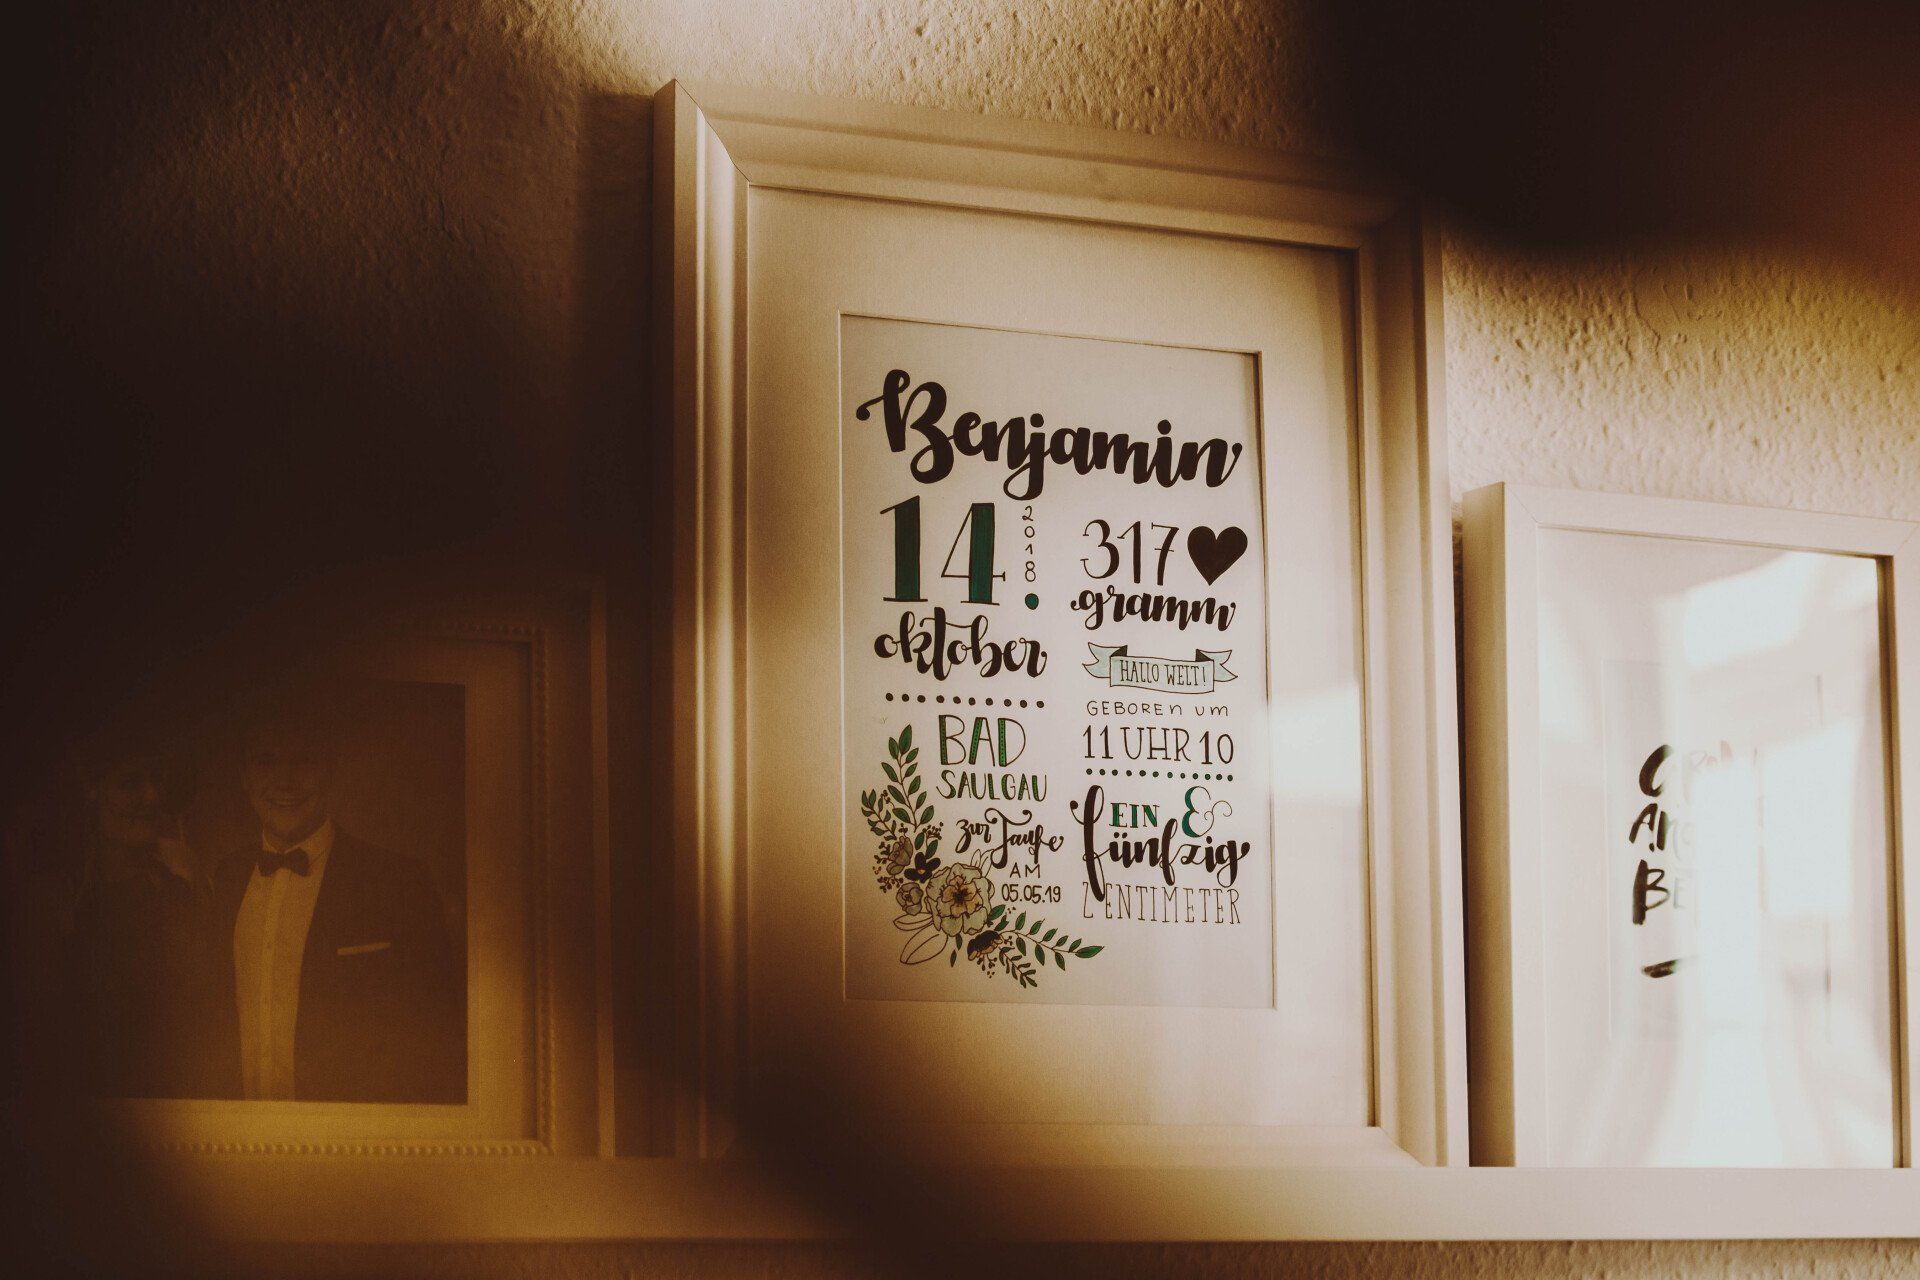 Benjamin
14. 2018
oktober
BAD
SAULGAU
zur Taufe
AM
05.05.19
317
gramm
HALLO WELT!
GEBOREN UM
11 UHR 10
EIN &
fünfzig
ZENTIMETER